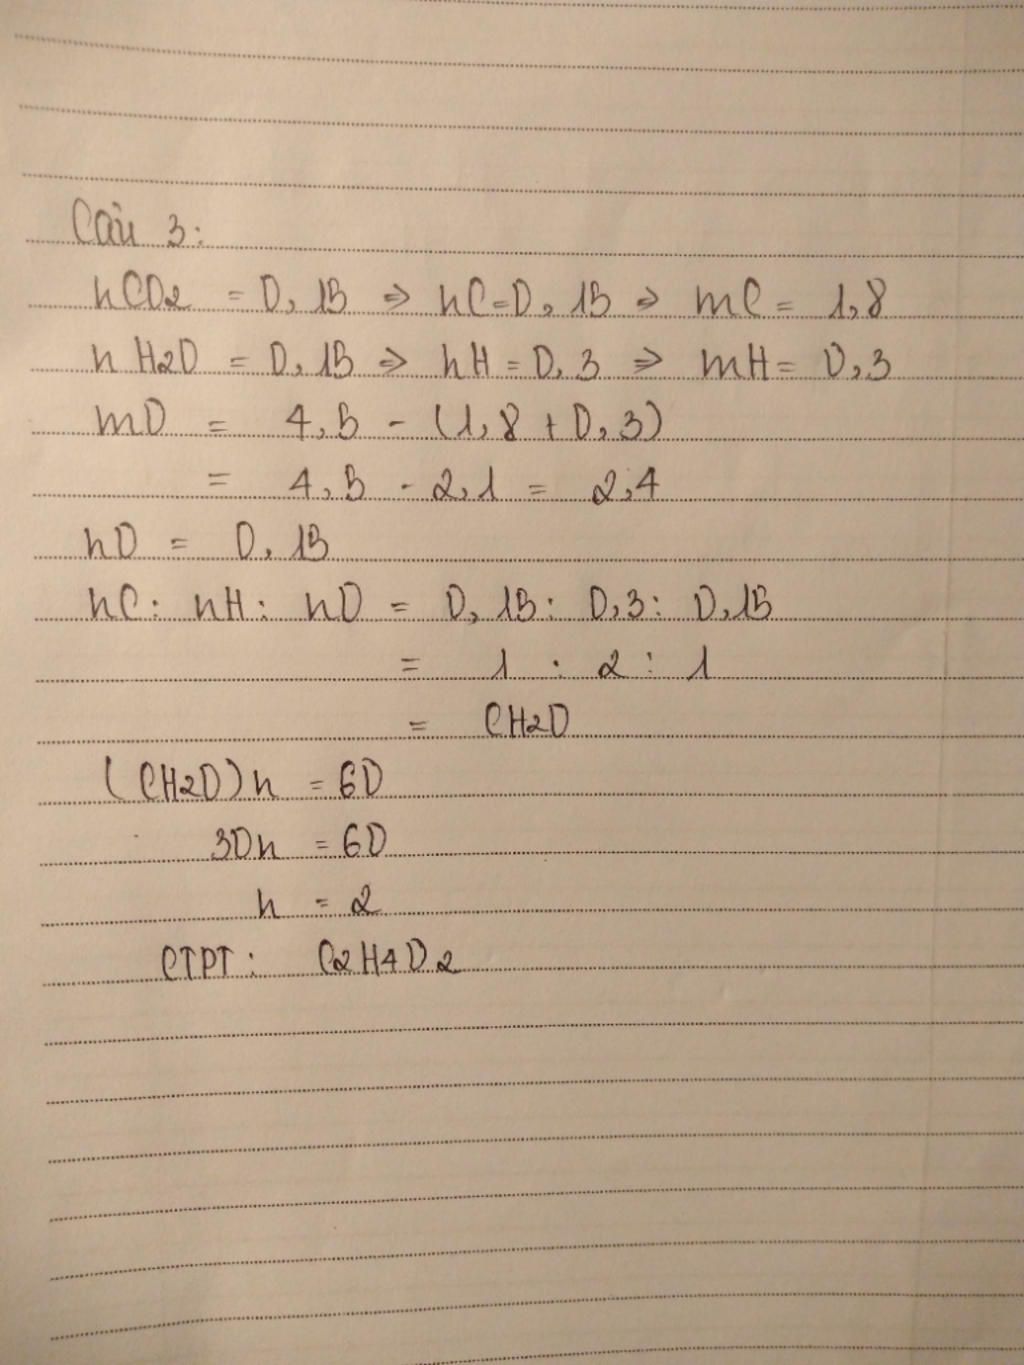 Câu 3:
nCO2 = 0,15 => nC=0,15 => mC = 1,8
nH2O = 0,15 => nH = 0,3 => mH = 0,3
mO = 4,5 - (1,8 + 0,3)
= 4,5 - 2,1 = 2,4
nO = 0,15
nC: nH: nO = 0,15: 0,3: 0,15
= 1 : 2 : 1
= CH2O
(CH2O)n = 60
30n = 60
n = 2
CTPT: C2H4O2